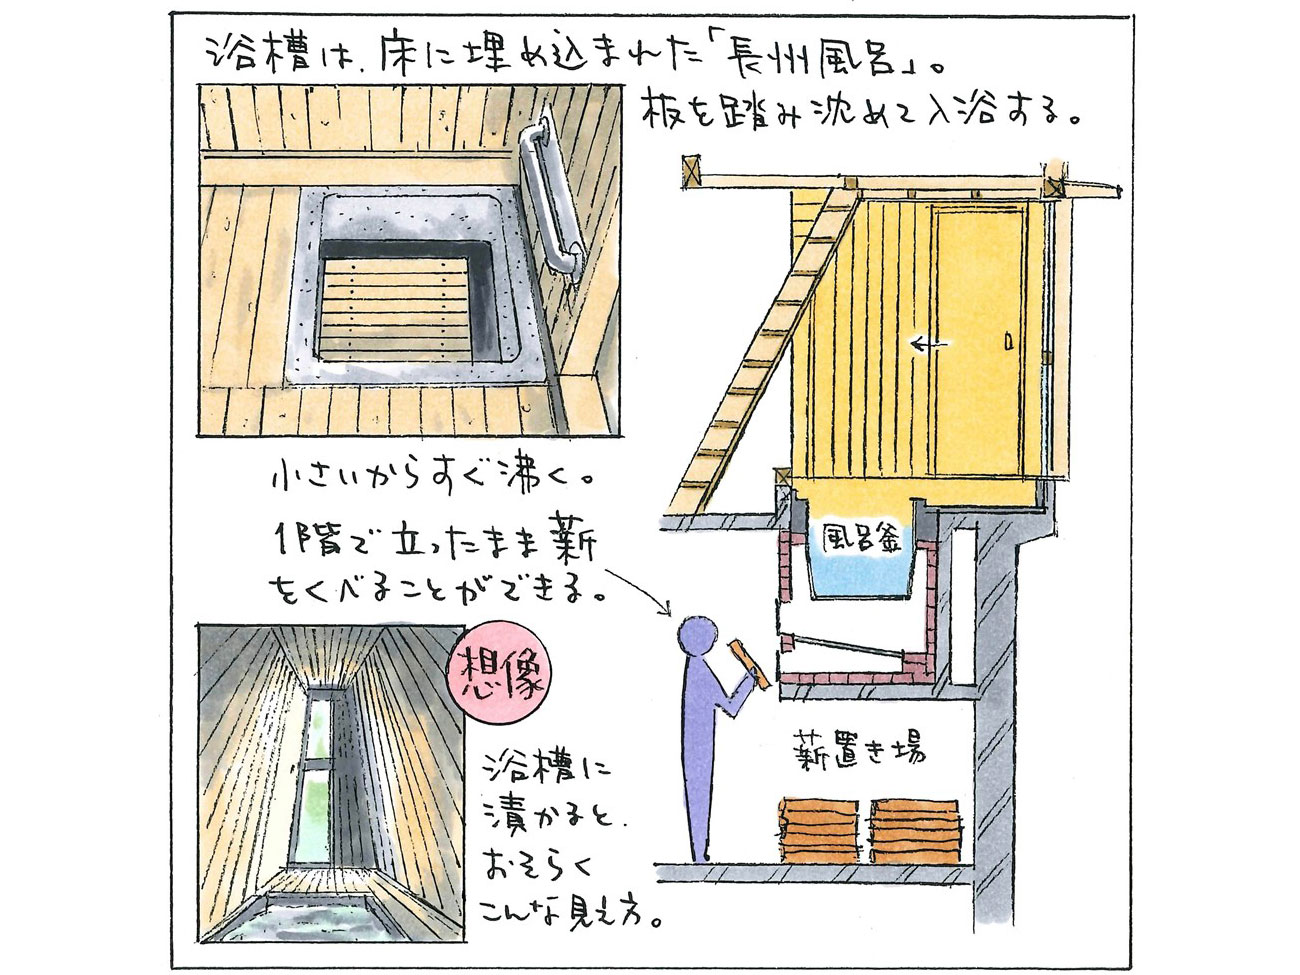 浴槽は、床に埋め込まれた「長州風呂」。
板を踏み沈めて入浴する。
小さいからすぐ沸く。
1階で立ったまま薪
をくべることができる。
風呂釜
薪置き場
想像
浴槽に
漬かると、
おそらく
こんな見え方。